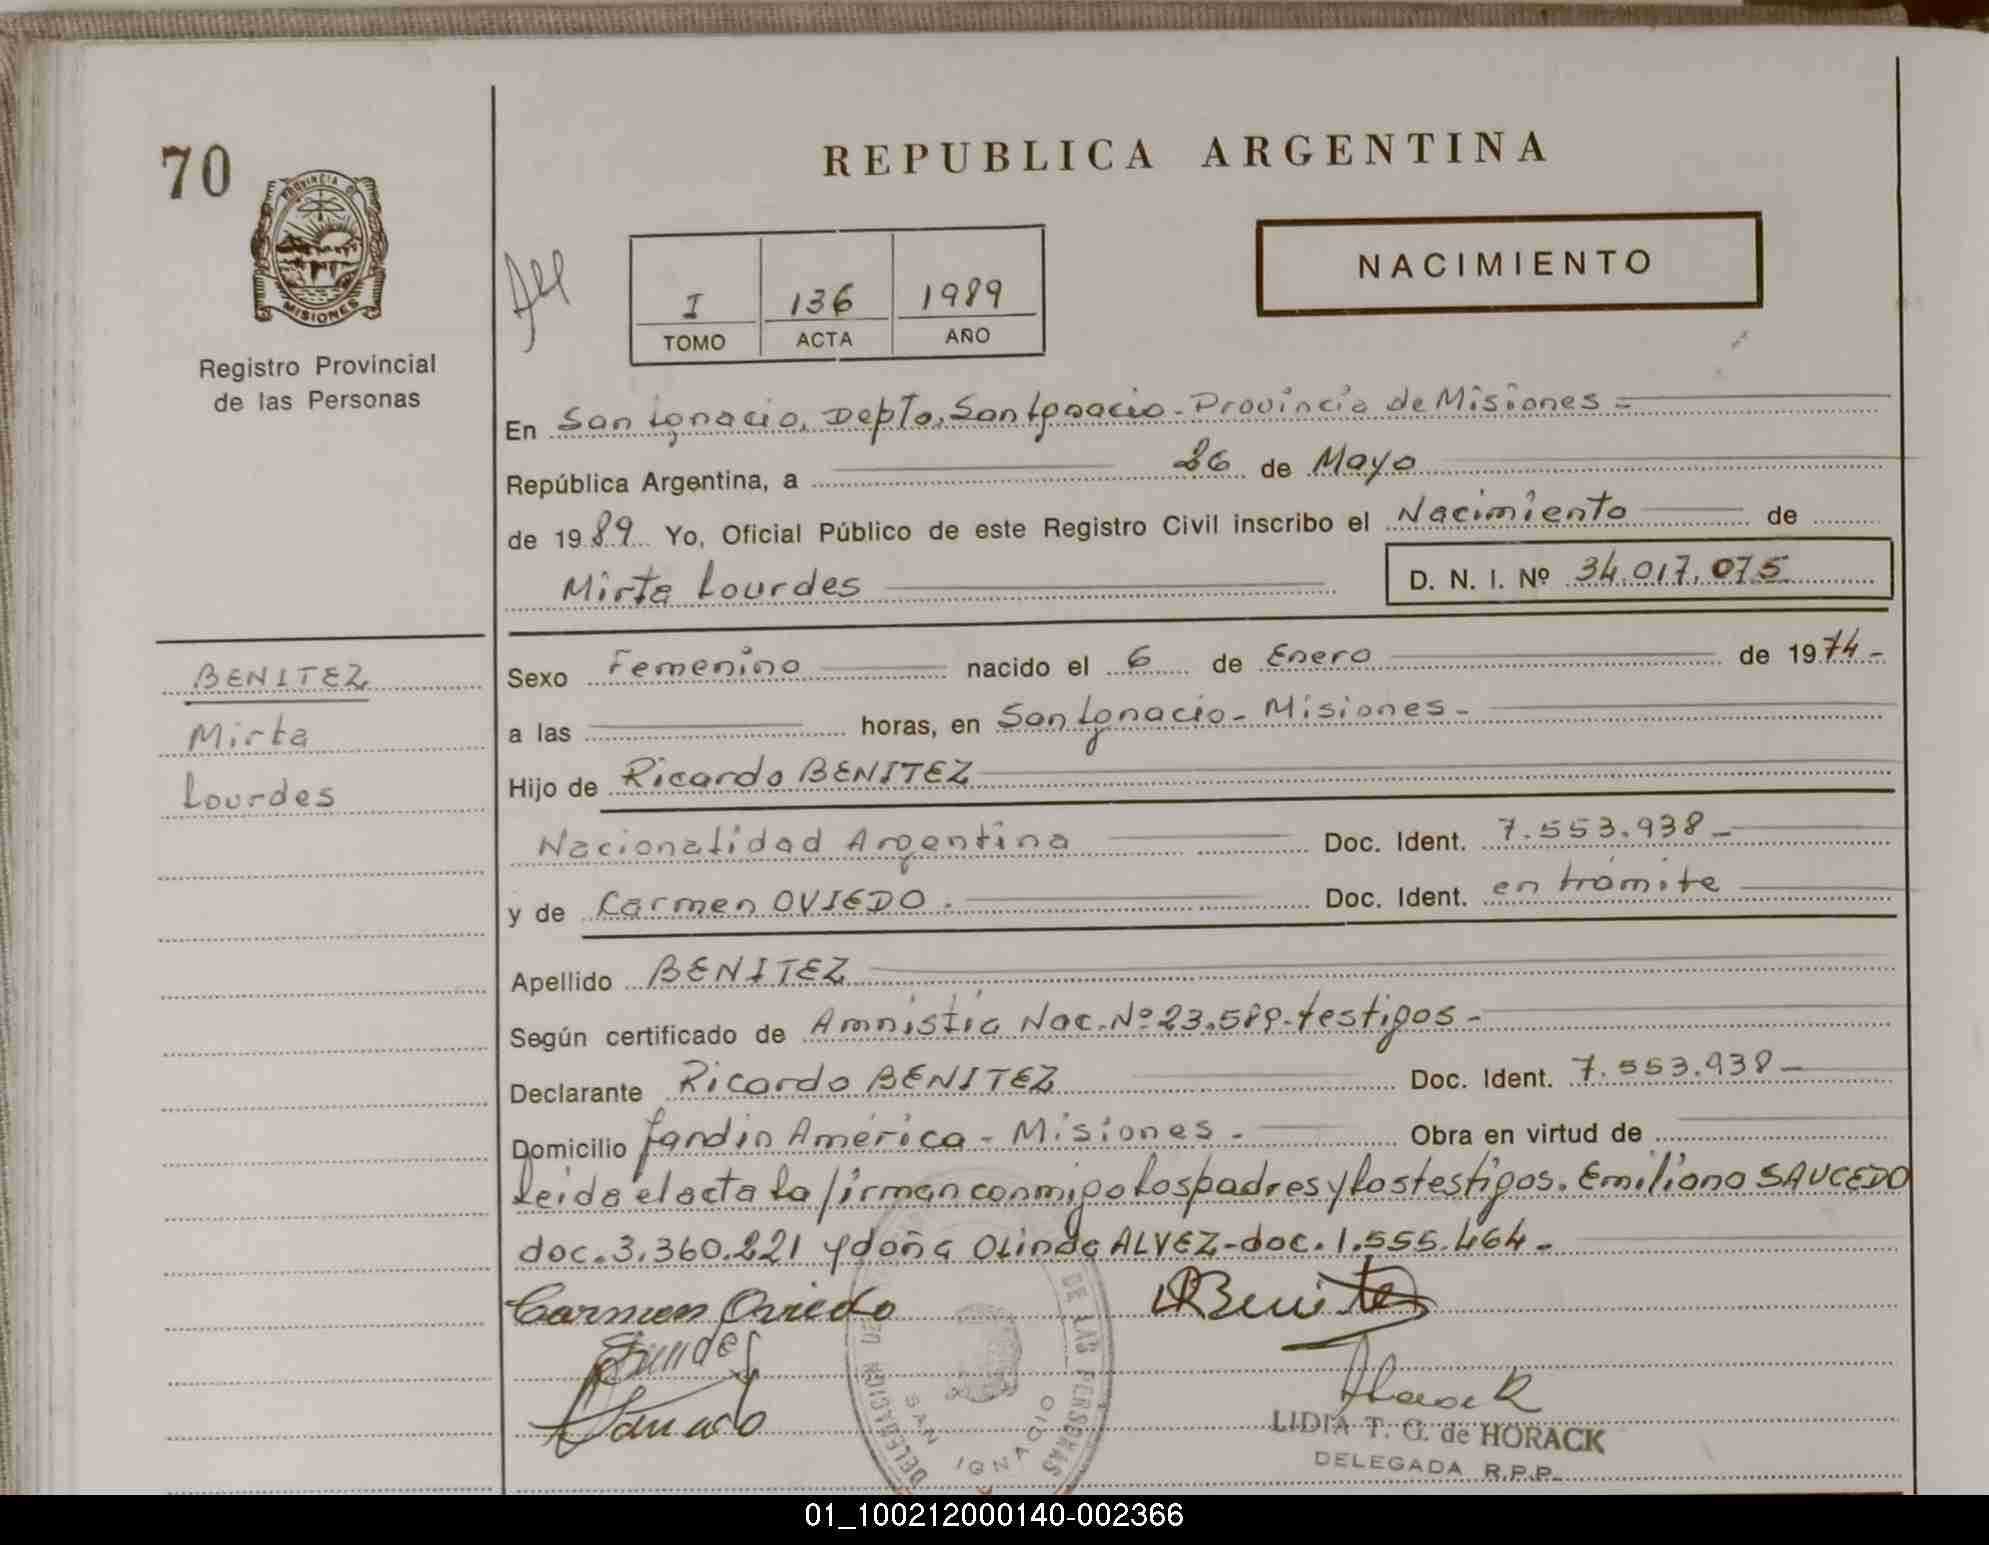 70
PROVINCIA DE
MISIONES
Registro Provincial
de las Personas
REPUBLICA ARGENTINA
NACIMIENTO
I 136 1989
TOMO ACTA AÑO
En San Ignacio, Depto, San Ignacio - Provincia de Misiones -
República Argentina, a 26 de Mayo
de 1989 Yo, Oficial Público de este Registro Civil inscribo el Nacimiento de
Mirta Lourdes D. N. I. Nº 34.017.075
BENITEZ
Mirta
Lourdes
Sexo Femenino nacido el 6 de Enero de 1974-
a las horas, en San Ignacio - Misiones -
Hijo de Ricardo BENITEZ
Nacionalidad Argentina Doc. Ident. 7.553.938-
y de Carmen OVIEDO. Doc. Ident. en trámite
Apellido BENITEZ
Según certificado de Amnistia Nac. Nº 23.589-testigos-
Declarante Ricardo BENITEZ Doc. Ident. 7.553.938-
Domicilio Jardin América - Misiones - Obra en virtud de
Leida el acta la firman conmigo los padres y los testigos. Emiliano SAUCEDO
doc. 3.360.221 y doña Olinda ALVEZ - doc. 1.555.464-
Carmen Oviedo RBenitez
Horack
LIDIA T. G. de HORACK
DELEGADA R.P.P.
DELEGACION DE LAS PERSONAS
SAN IGNACIO
01_100212000140-002366